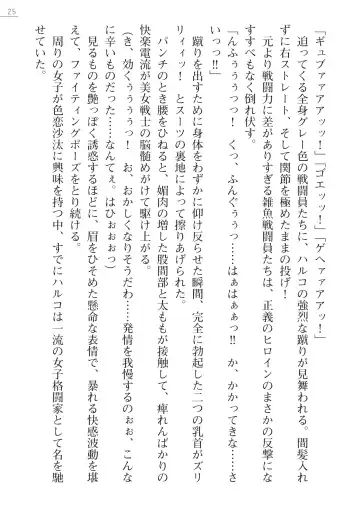 25
「ギュブァァアアッ！」「ゴエッッ！」「ゲヘァァアアッ！」
迫ってくる全身グレー色の戦闘員たちに、ハルコの強烈な蹴りが見舞われる。間髪入れ
ずに右ストレート、そして関節を極めたままの投げ！
元より戦闘力に差がありすぎる雑魚戦闘員たちは、正義のヒロインのまさかの反撃にな
すすべもなく倒れ伏す。
「んふぅぅぅつっ！　くっ、ふんぐぅぅっ……はぁはぁぁっ‼　か、かかってきな……さ
いっっ‼」
蹴りを出すために身体をわずかに仰け反らせた瞬間、完全に勃起した二つの乳首がズリ
リィィッ！　とスーツの裏地によって擦りあげられた。
パンチのとき腰をひねると、媚肉の増した股間部と太ももが接触して、痺れんばかりの
快楽電流が美女戦士の脳髄めがけて駆け上がる。
（き、効くぅぅぅぅっ！　お、おかしくなりそうだわ……発情を我慢するのぉぉ、こんな
に辛いものだった……なんてぇ。はひぉぉぉっ）
見るものを艶っぽく誘惑するほどに、眉をひそめた懸命な表情で、暴れる快感波動を堪
えて、ファイティングポーズをとり続ける。
周りの女子が色恋沙汰に興味を持つ中、すでにハルコは一流の女子格闘家として名を馳
せていた。